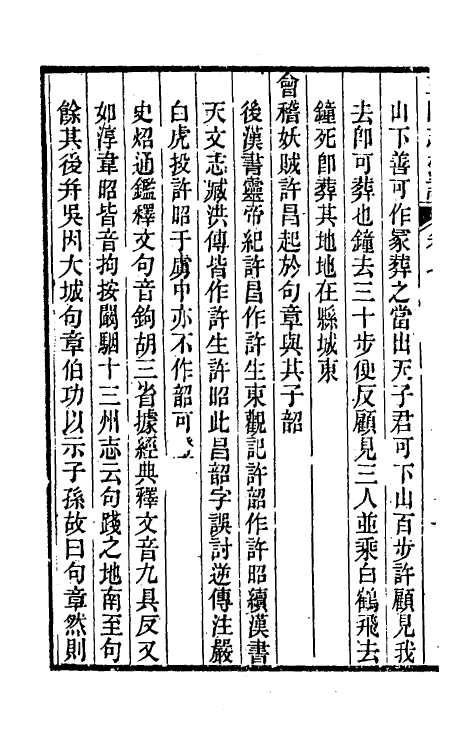 山下善可作冢葬之當出天子君可下山百步許顧見我
去卽可葬也鐘去三十步便反顧見三人並乘白鶴飛去
鐘死卽葬其地地在縣城東
會稽妖賊許昌起於句章與其子韶
後漢書靈帝紀許昌作許生東觀記許韶作許昭續漢書
天文志臧洪傳皆作許生許昭此昌韶字誤討逆傳注嚴
白虎投許昭于虜中亦不作韶可證
史炤通鑑釋文句音鉤胡三省據經典釋文音九具反又
如淳韋昭皆音拘按闞駰十三州志云句踐之地南至句
餘其後并吳因大城句章伯功以示子孫故曰句章然則